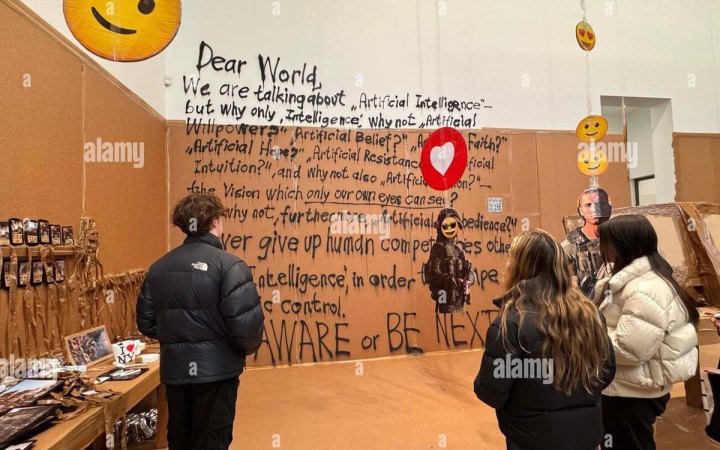 Dear World,
We are talking about „Artificial Intelligence"–
but why only ‚Intelligence', why not „Artificial
Willpower?" „Artificial Belief?" Faith?"
„Artificial Hope?" „Artificial Resistance
Intuition?", and why not also „Artificial
the Vision which only our own eyes can see?
why not, furthermore, Artificial
give up human
Intelligence', in order to
control.
AWARE or BE NEXT
I ♥ NY
THE NORTH FACE
alamy
alamy
alamy
alamy
alamy